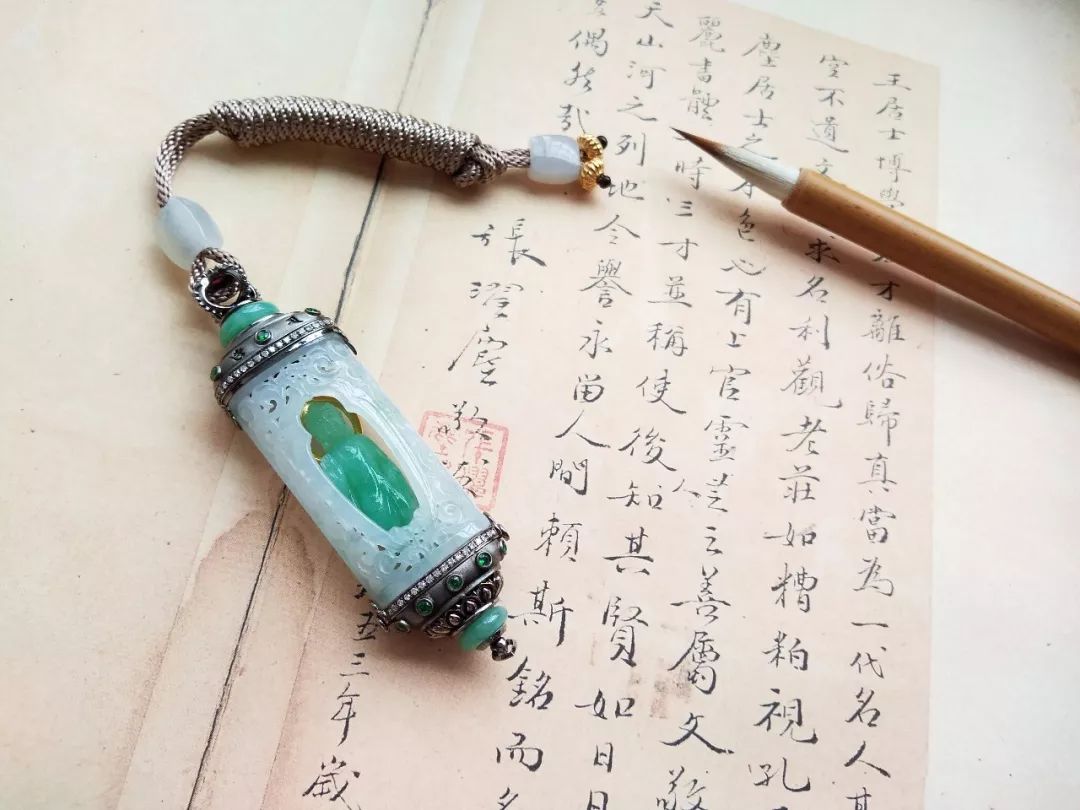 王居士博學才離俗歸真當為一代名人其
空不遺文求名利觀老莊如糟粕視孔
塵居士之才色心有上官靈芝之善屬文敬
麗書體一時三才並稱使後人知其賢如日
天山河之列地令譽永留人間賴斯銘而名
偶然哉
張澄塵敬
五三年歲